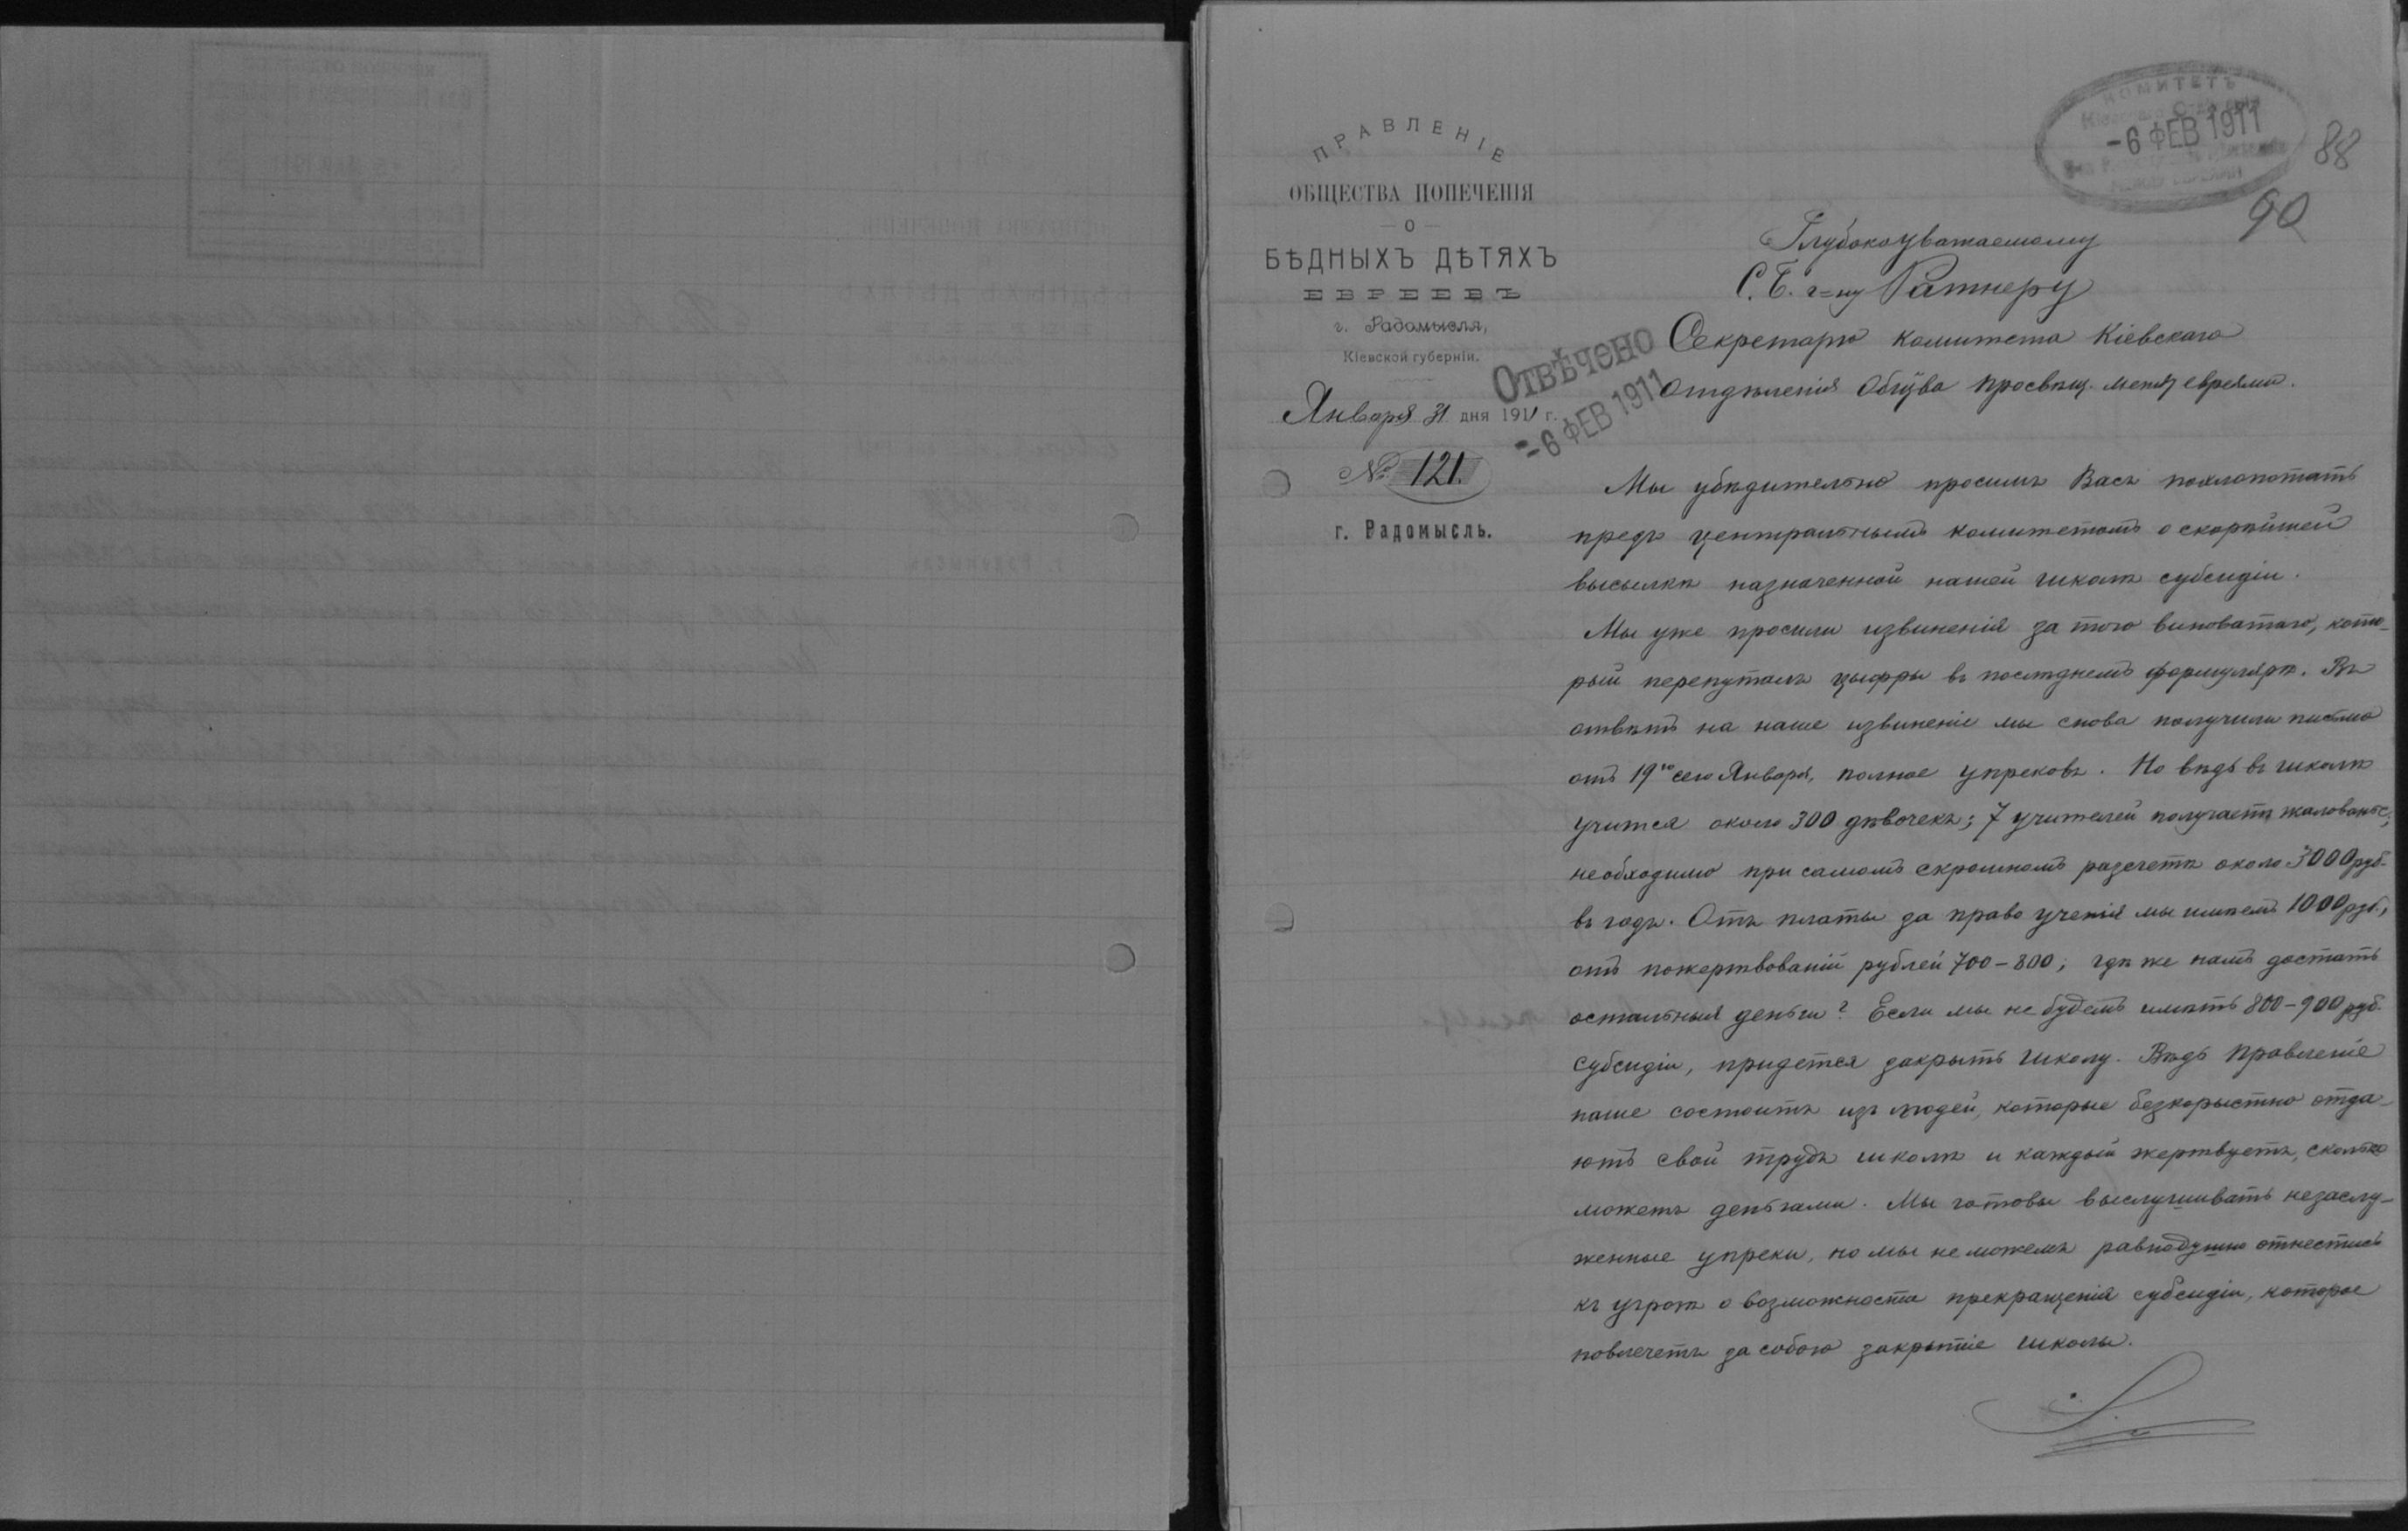 ПРАВЛЕНІЕ
ОБЩЕСТВА ПОПЕЧЕНІЯ
О
БѢДНЫХЪ ДѢТЯХЪ
ЕВРЕЕВЪ
г. Радомысля,
Кіевской губерніи.
Января 31 дня 1911 г.
№ 121.
г. Радомысль.
КОМИТЕТЪ
-6 ФЕВ 1911
88
90
ОТВѢЧЕНО
-6 ФЕВ 1911
Глубокоуважаемому
С. Б. г=ну Ратнеру
Секретарю комитета Кіевскаго
Отдѣленія Общ̃ва просвѣщ. между евреями.
Мы убѣдительно просимъ Васъ похлопотать
предъ центральнымъ комитетомъ о скорѣйшей
высылкѣ назначенной нашей школѣ субсидіи.
Мы уже просили извиненія за того виноватаго, кото-
рый перепуталъ цыфры въ послѣднемъ формулярѣ. Въ
отвѣтъ на наше извиненіе мы снова получили письмо
отъ 19го сего Января, полное упрековъ. Но вѣдь въ школѣ
учится около 300 дѣвочекъ; 7 учителей получаетъ жалованье;
необходимо при самомъ скромномъ разсчетѣ около 3000 руб.
въ годъ. Отъ платы за право ученія мы имѣемъ 1000 руб.,
отъ пожертвованій рублей 700-800; гдѣ же намъ достать
остальныя деньги? Если мы не будемъ имѣть 800-900 руб.
субсидіи, придется закрыть школу. Вѣдь Правленіе
наше состоитъ изъ людей, которые безкорыстно отда-
ютъ свой трудъ школѣ и каждый жертвуетъ, сколько
можетъ деньгами. Мы готовы выслушивать незаслу-
женные упреки, но мы не можемъ равнодушно отнестись
къ угрозѣ о возможности прекращенія субсидіи, которое
повлечетъ за собою закрытіе школы.